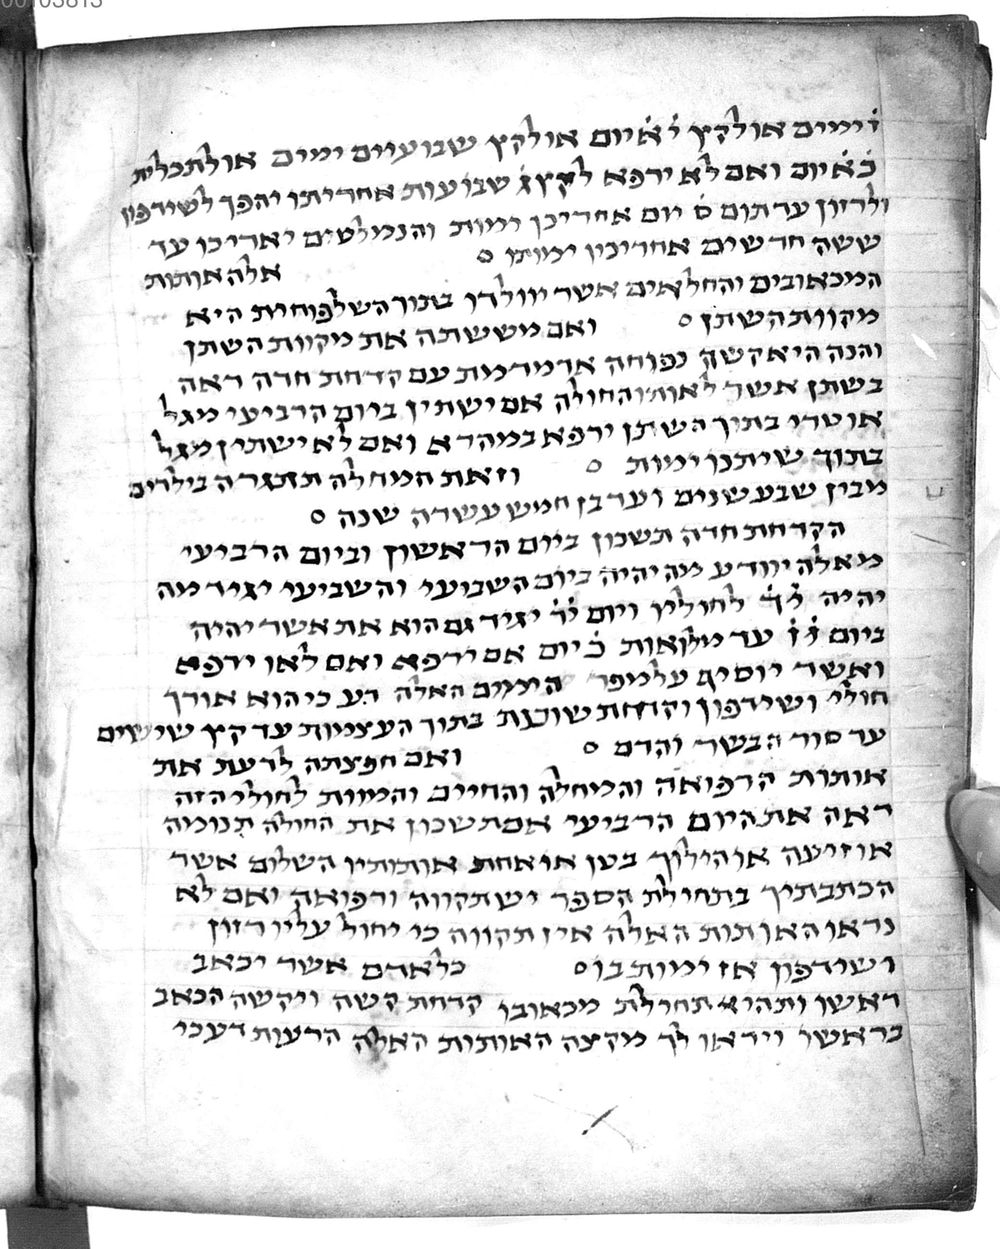 00103813
ז ימים או לקץ י̇א̇ יום או לקץ שבועיים ימים או לתכלית
כ̇א̇ יום ואם לא ירפא לקץ ג̇ שבועות אחריתו יהפך לשידפון
ולרזון עד תום ס̇ יום אחרי כן ימות והנמלטים יאריכו עד
ששה חדשים אחרי כין ימותו ס אלה אותות
המכאובים והחלאים אשר יוולדו בתור השלפוחית היא
מקוות השתן ס ואם מששתה את מקוות השתן
והנה היא קשה נפוחה אדמדמת עם קדחת חדה ראה
בשתן אשר לאותו החולה אם ישתין ביום הרביעי מגל
או טרי בתוך השתן ירפא במהרא ואם לא ישתין מגל
בתוך שיתנו ימות ס וזאת המחלה תתגרה בילדים
מבין שבע שנים ועד בן חמש עשרה שנה ס
הקדחת חדה תשכון ביום הראשון וביום הרביעי
מאלה יוודע מה יהיה ביום השבועי והשביעי יגיד מה
יהיה י̇ד̇ לחוליו ויום י̇ד̇ יגיד גם הוא את אשר יהיה
ביום י̇ז̇ עד מלואות כ̇ יום אם ירפא ואם לאו ירפא
ואשר יוסיף על מיפר הימים האלה דע כי הוא אורך
חולי ושידפון וקדחת שוכנת בתוך העצמות עד קץ שישים
עד סור הבשר והדם ס ואם חפצתה לדעת את
אותות הרפואה והמחלה והחיים והמוות לחולי הזה
ראה את היום הרביעי אם תשכון את החולה תנומה
או זיעה או הילוך בטן או אחת אותותיו השלום אשר
הכתבתיך בתחילת הספר יש תקווה ורפואה ואם לא
נראו האותות האלה אין תקווה כי יחול עליו רזון
ושידפון אז ימות בו ס כל אדם אשר יכאב
ראשו ותהיה תחילת מכאובו קדחת קשה ויקשה הכאב
בראשו ויראו לך מקצה האותות האלה הרעות דע כי